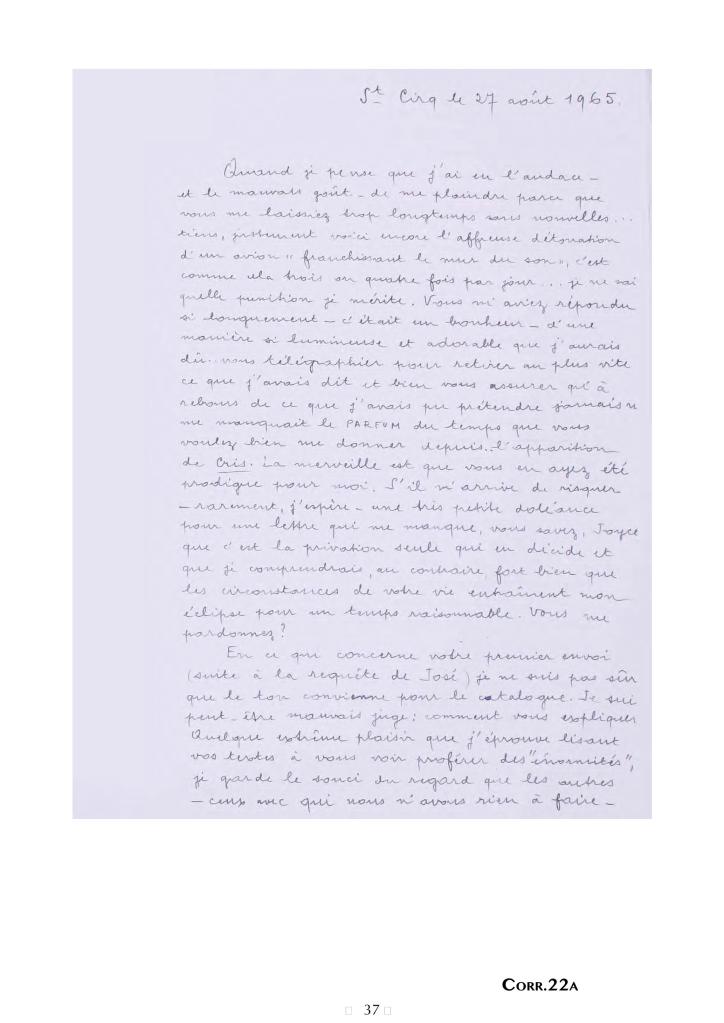 St Cirq le 27 août 1965.
Quand je pense que j'ai eu l'audace –
et le mauvais goût – de me plaindre parce que
vous me laissiez trop longtemps sans nouvelles...
tiens, justement voici encore l'affreuse détonation
d'un avion "franchissant le mur du son", c'est
comme cela trois ou quatre fois par jour... je ne sai
quelle punition je mérite. Vous m'aviez répondu
si longuement – c'était un bonheur – d'une
manière si lumineuse et adorable que j'aurais
dû.. vous télégraphier pour retirer au plus vite
ce que j'avais dit et bien vous assurer qu'à
rebours de ce que j'avais pu prétendre jamais n
me manquait le PARFUM du temps que vous
voulez bien me donner depuis.. l'apparition
de Cris. La merveille est que vous en ayez été
prodigue pour moi. S'il m'arrive de risquer
– rarement, j'espère – une très petite doléance
pour une lettre qui me manque, vous savez, Joyce
que c'est la privation seule qui en décide et
que je comprendrais, au contraire, fort bien que
les circonstances de votre vie entraînent mon
éclipse pour un temps raisonnable. Vous me
pardonnez?
En ce qui concerne votre premier envoi
(suite à la requête de José) je ne suis pas sûr
que le ton convienne pour le catalogue. Je sui
peut-être mauvais juge: comment vous expliquer
Quelque extrême plaisir que j'éprouve lisant
vos textes à vous voir proférer des "énormités",
je garde le souci du regard que les autres
– ceux avec qui nous n'avons rien à faire –
CORR.22A
37